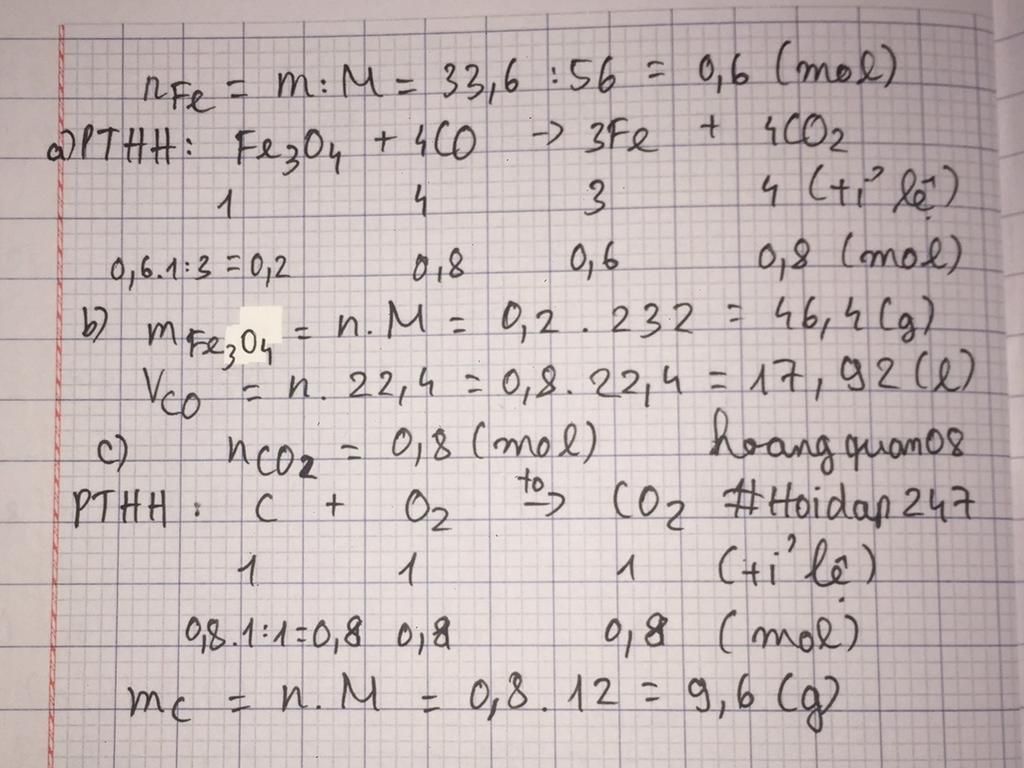 nFe = m : M = 33,6 : 56 = 0,6 (mol)
a) PTHH : Fe3O4 + 4CO -> 3Fe + 4CO2
1 4 3 4 (tỉ lệ)
0,6.1:3 = 0,2 0,8 0,6 0,8 (mol)
b) mFe3O4 = n.M = 0,2 . 232 = 46,4 (g)
VCO = n. 22,4 = 0,8. 22,4 = 17,92 (l)
c) nCO2 = 0,8 (mol) hoangquan08
PTHH : C + O2 to -> CO2 #Hoidap247
1 1 1 (tỉ lệ)
0,8.1:1=0,8 0,8 0,8 (mol)
mC = n.M = 0,8. 12 = 9,6 (g)